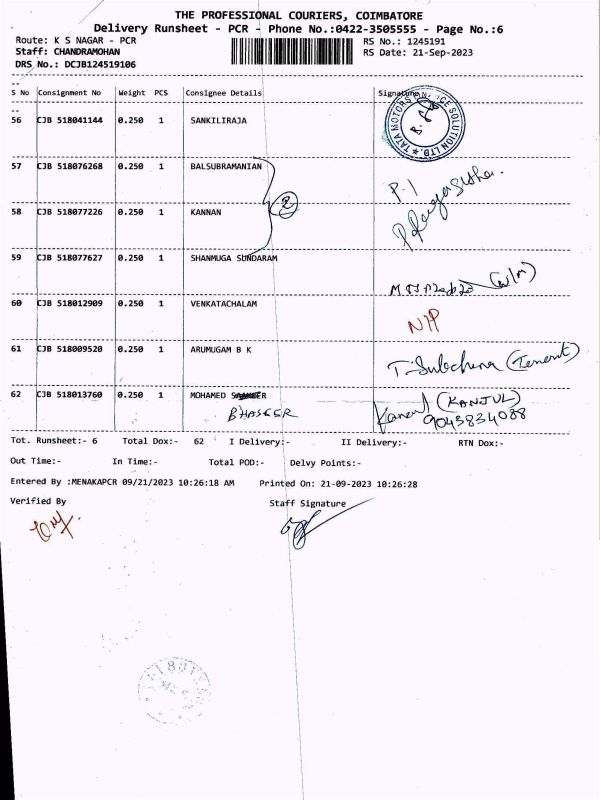 THE PROFESSIONAL COURIERS, COIMBATORE
Delivery Runsheet - PCR - Phone No.:0422-3505555 - Page No.:6
Route: K S NAGAR - PCR RS No.: 1245191
Staff: CHANDRAMOHAN RS Date: 21-Sep-2023
DRS No.: DCJB124519106
S No Consignment No Weight PCS Consignee Details Signature
56 CJB 518041144 0.250 1 SANKILIRAJA
TATA MOTORS FINANCE SOLUTION LTD.
57 CJB 518076268 0.250 1 BALSUBRAMANIAN P.1
2
58 CJB 518077226 0.250 1 KANNAN
59 CJB 518077627 0.250 1 SHANMUGA SUNDARAM
(W/M)
60 CJB 518012909 0.250 1 VENKATACHALAM
N/P
61 CJB 518009520 0.250 1 ARUMUGAM B K
(Tenent)
62 CJB 518013760 0.250 1 MOHAMED
BHASEER (KANJUL)
9043834088
Tot. Runsheet:- 6 Total Dox:- 62 I Delivery:- II Delivery:- RTN Dox:-
Out Time:- In Time:- Total POD:- Delvy Points:-
Entered By :MENAKAPCR 09/21/2023 10:26:18 AM Printed On: 21-09-2023 10:26:28
Verified By Staff Signature